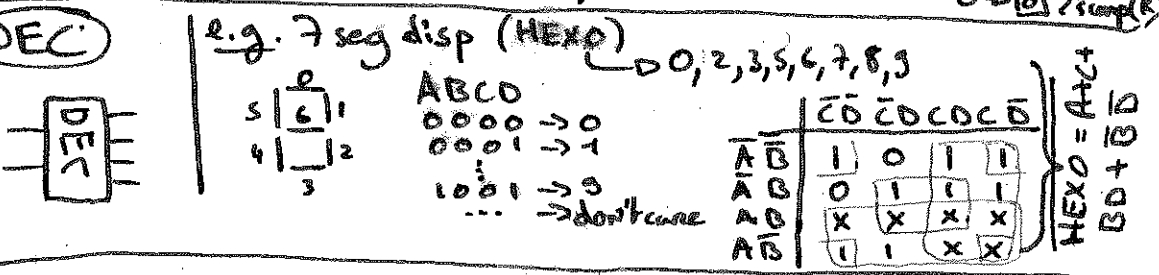 DEC
DEC
e.g. 7 seg disp (HEX0)
→ 0, 2, 3, 5, 6, 7, 8, 9
0
5 6 1
4 2
3
A B C D
0 0 0 0 → 0
0 0 0 1 → 1
⋮
1 0 0 1 → 9
... → don't care
C̄D̄ C̄D CD CD̄
ĀB̄ 1 0 1 1
ĀB 0 1 1 1
AB X X X X
AB̄ 1 1 X X
HEX0 = A+C+
BD + B̄D̄